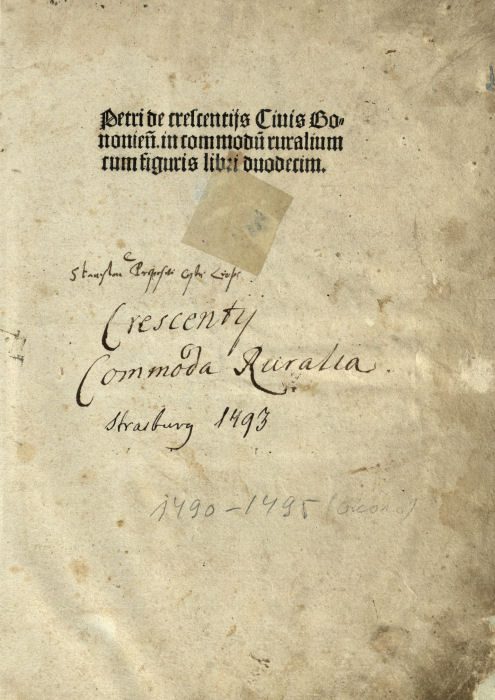 Petri de crescentijs Ciuis Bo-
nonieñ. in commodū ruralium
cum figuris libri duodecim.
Crescenty
Commoda Ruralia.
Strasburg 1493
1490-1495